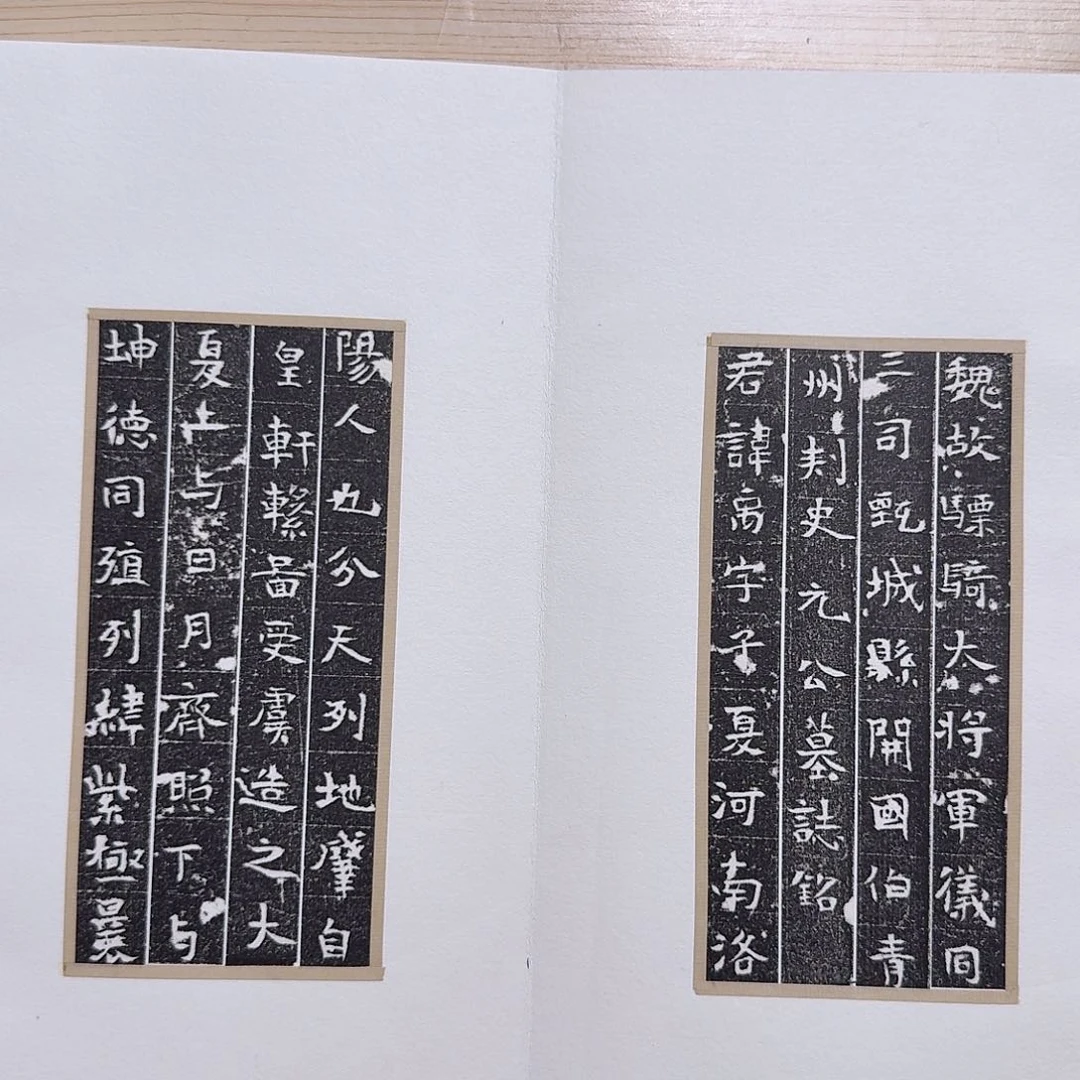 魏故驃騎大將軍儀同
三司甄城縣開國伯青
州刾史元公墓誌銘
君諱离字子夏河南洛
陽人也分天列地肇自
皇軒繫啚受虞造之大
夏上与日月齊照下与
坤德同殖列緯紫極